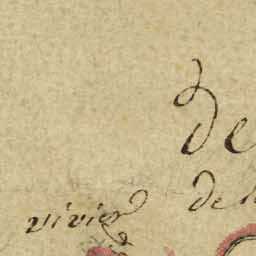 de
de
vivier